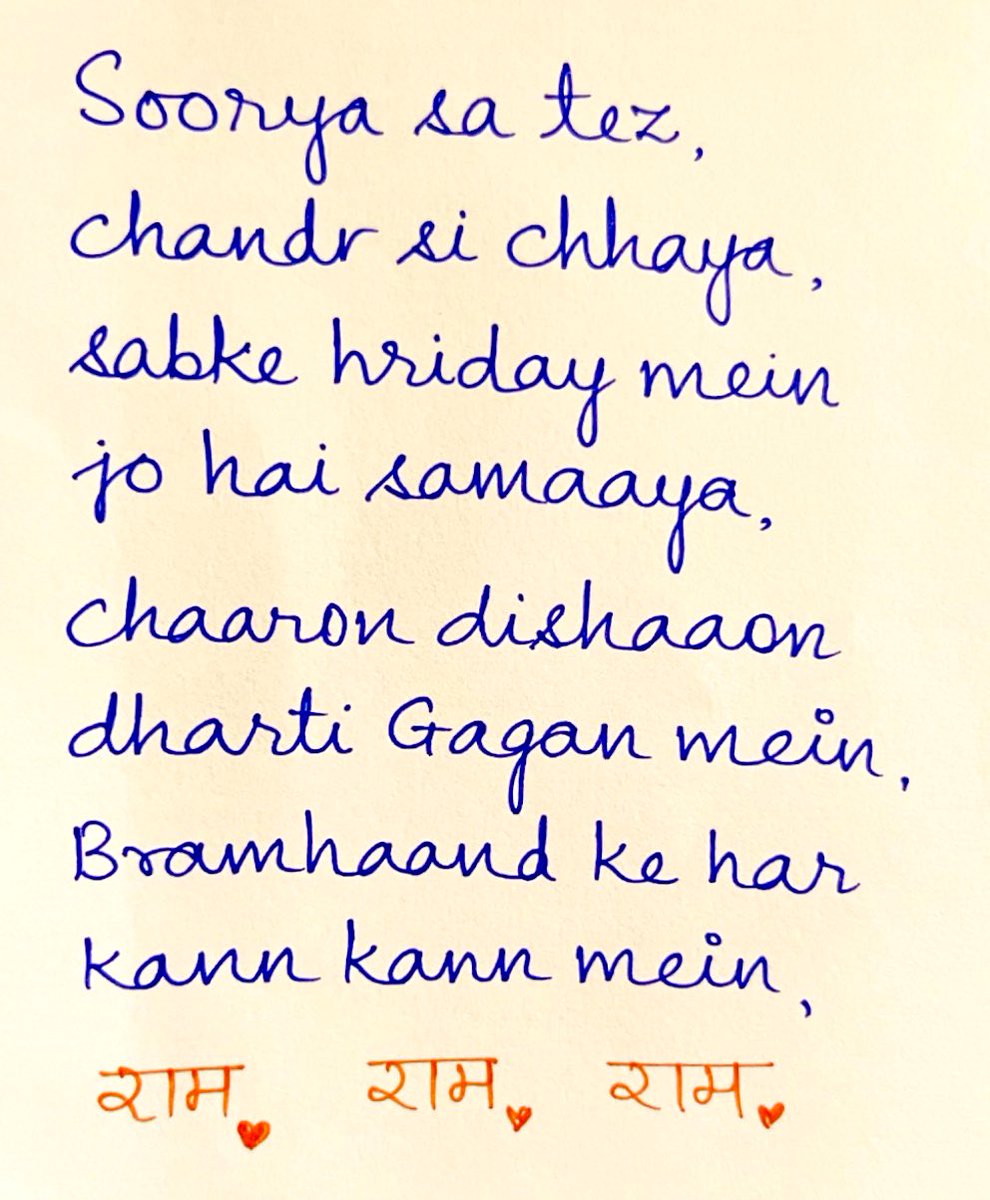 Soorya sa tez,
chandr si chhaya,
sabke hriday mein
jo hai samaaya,
chaaron dishaaon
dharti Gagan mein,
Bramhaand ke har
kann kann mein,
राम राम राम